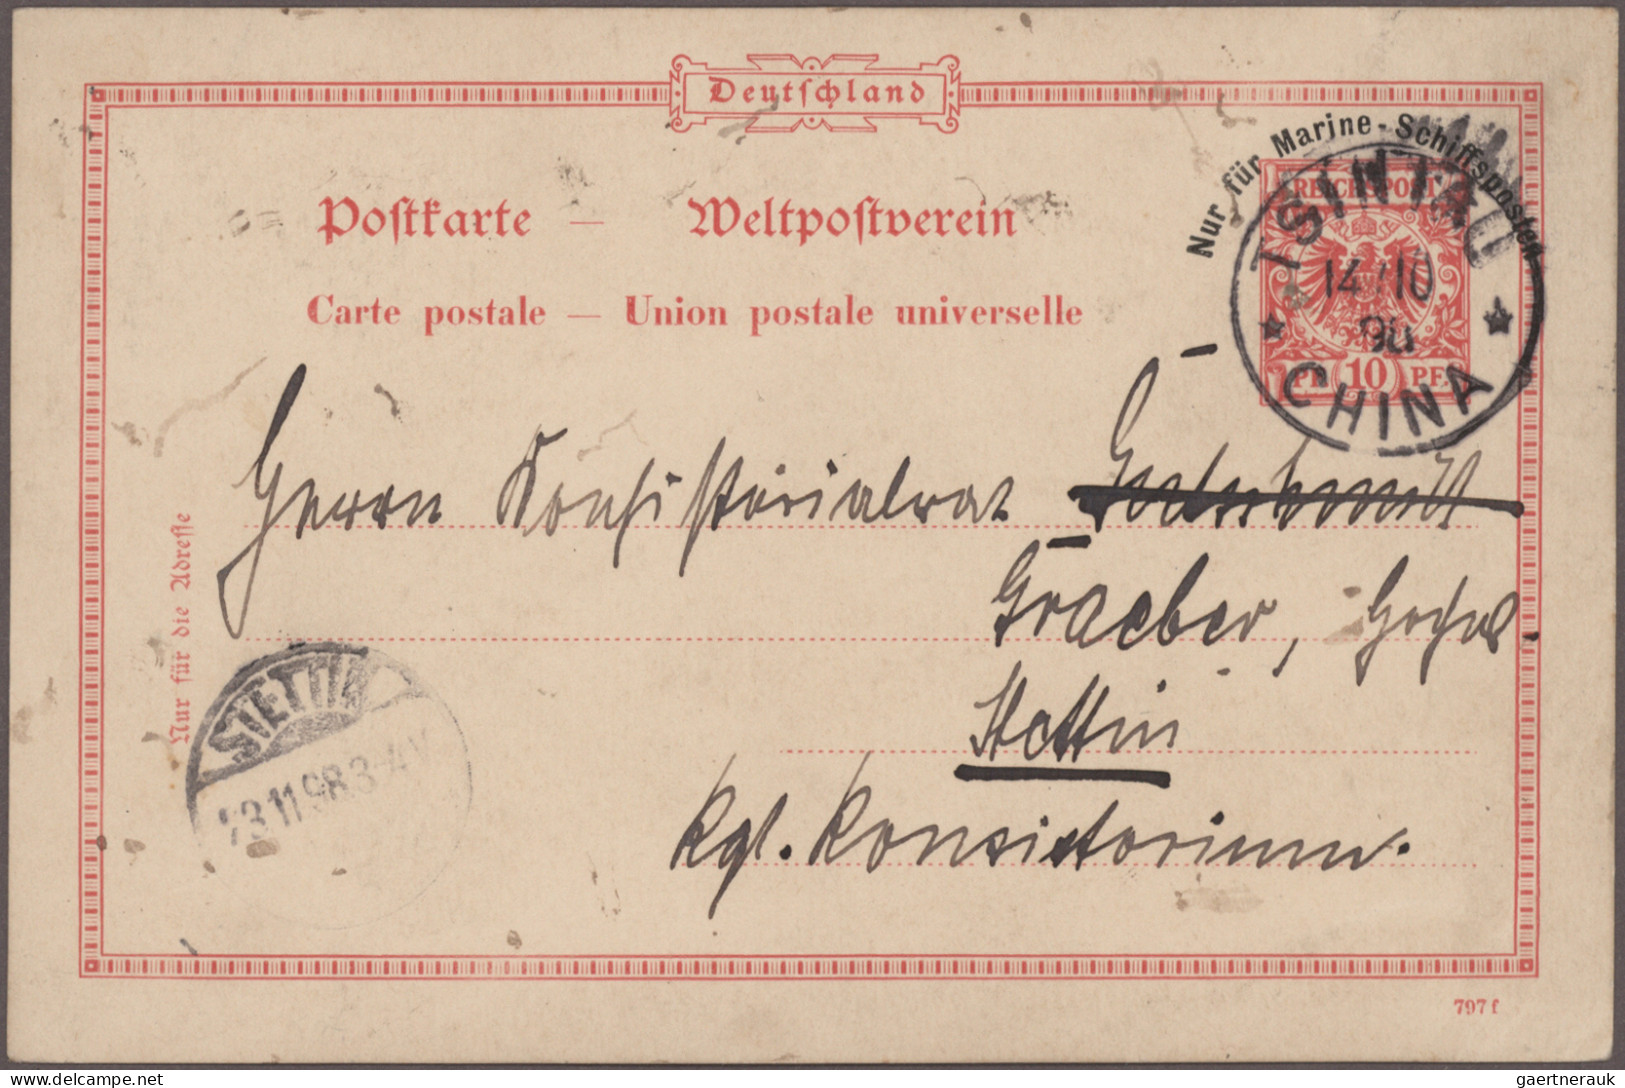 Deutschland
Nur für Marine-Schiffsposten
Postkarte — Weltpostverein
Carte postale — Union postale universelle
REICHSPOST
PF 10 PF
TSINTAU
14/10
98
CHINA
Herrn Konsistorialrat
Graeber, Hochw.
Stettin
Kgl. Konsistorium.
Nur für die Adresse
STETTIN
13.11.98.3-4N
797 f
gaertnerauk